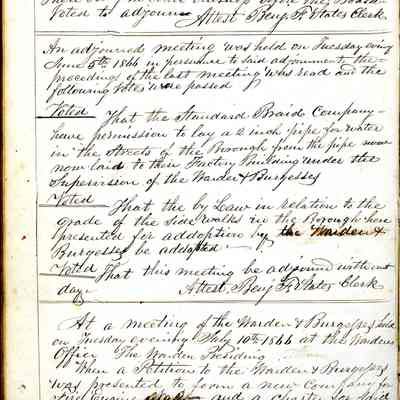 Voted to adjourn Attest Benj. F. Clerk
An adjourned meeting was held on Tuesday evening
June 5th 1866 in persuance to said adjournment the
procedings of the last meeting was read and the
following Votes were passed
Voted That the Standard Braid Company
have permission to lay a 2 inch pipe for water
in the Streets of the Borough from the pipe now
now laid to their Factory Building under the
Supervision of the Warden & Burgesses
Voted That the by Law in relation to the
grade of the side walks in the Borough here
presented for addoption by the Warden &
Burgesses be addopted
Voted That this meeting be adjourned without
day. Attest, Benj. F. Clerk
At a meeting of the Warden & Burgesses held
on Tuesday evening July 10th 1866 at the Wardens
Office The Warden Presiding
When a Petition to the Warden & Burgesses
was presented to form a new Company for
Fire Engine and a charter for said